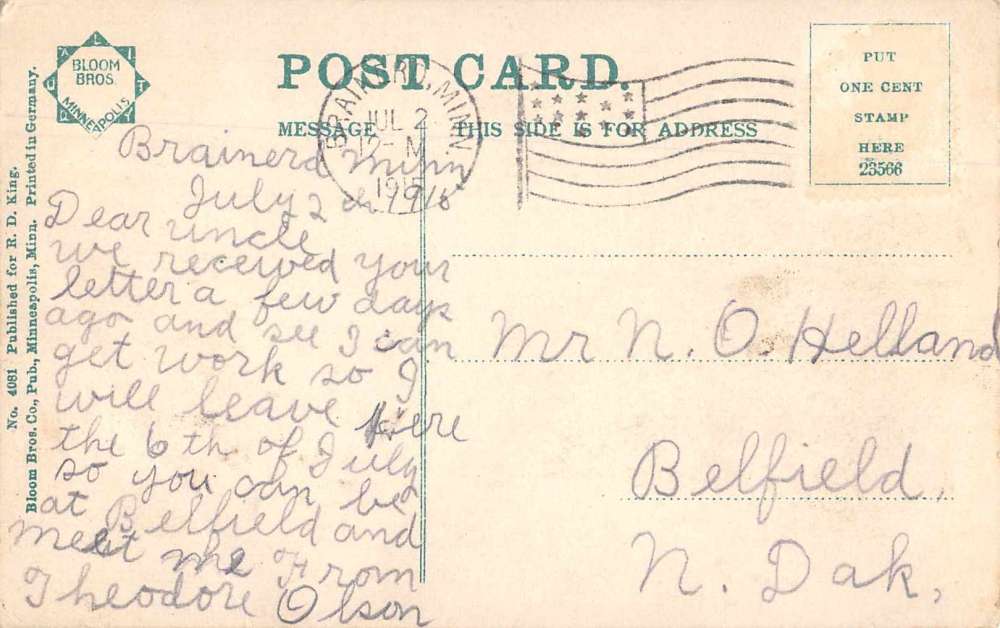 No. 4081 Published for R. D. King.
Bloom Bros. Co., Pub., Minneapolis, Minn. Printed in Germany.
BLOOM
BROS.
MINNEAPOLIS
POST CARD.
MESSAGE
THIS SIDE IS FOR ADDRESS
BRAINERD, MINN.
JUL 2
12-M
1915
PUT
ONE CENT
STAMP
HERE
23566
Brainerd Minn
July 2
Dear uncle
we received your
letter a few days
ago and see I can
get work so I
will leave Here
the 6 th of July
so you can be
at Belfield and
meet me From
Theodore Olson
Mr N. O. Helland
Belfield,
N. Dak,